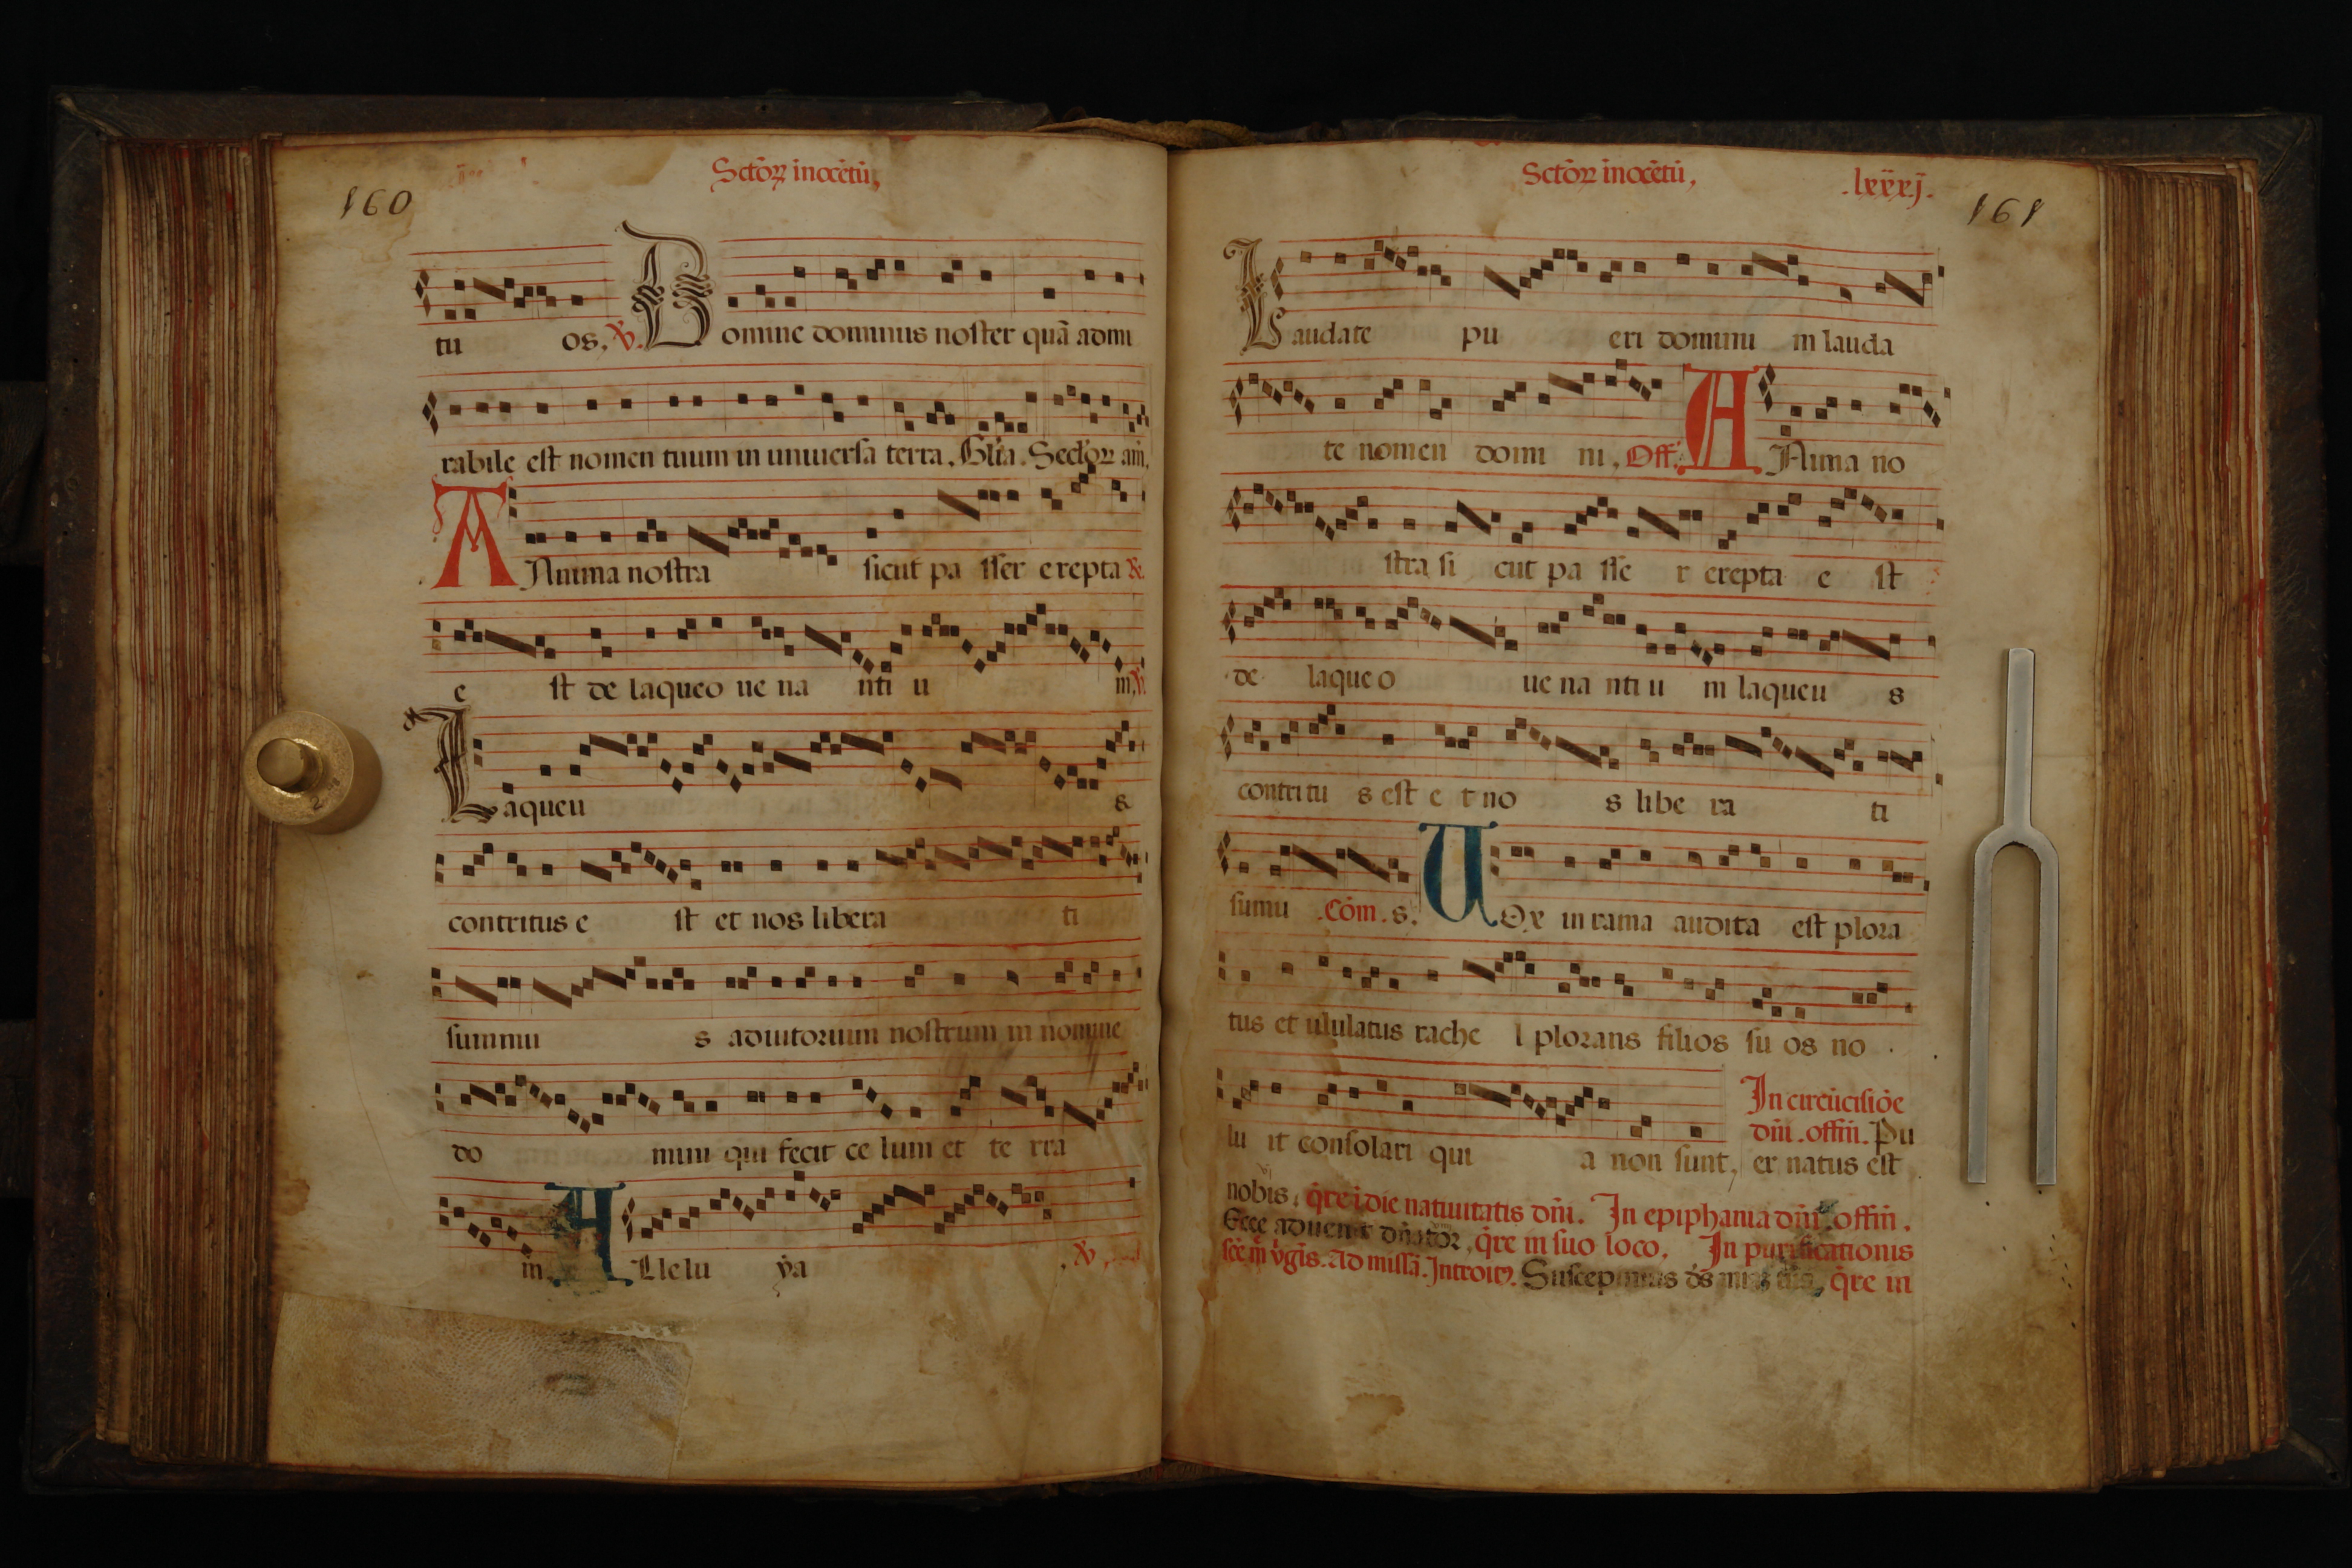 160
Sctoꝝ inocētū,
tu os. ℣. Domine dominus noster quā admi
rabile est nomen tuum in uniuersa terra. Glīa. Seculoꝝ am̄.
ANima nostra sicut pa sser erepta &
e st de laqueo ue na nti u m, ℣.
Laqueu s
contritus e st et nos libera ti
sumnu s adiutorium nostrum in nomine
do mini qui fecit ce lum et te rra
m. ALlelu ya . ℣.
Sctoꝝ inocētū,
.lxxxj.
161
Laudate pu eri domini m lauda
te nomen domi ni, Off. ANima no
stra si cut pa sse r erepta e st
de laqueo ue na nti u m laqueu s
contritu s est e t no s libe ra ti
sumu .Cōm. s. UOx in rama audita est plora
tus et ululatus rache l plorans filios su os no .
lu it consolari qui a non sunt,
In circūcisiōe
dn̄i. offm̄. Pu
er natus est
nobis, q̄re ī die natiuitatis dn̄i. In epiphania dn̄i offm̄.
Ecce aduenit dn̄ator, q̄re in suo loco. In purificationis
scē m̄ v̄gīs. Ad missā. Introitꝰ. Suscepimus ds̄ q̄re in